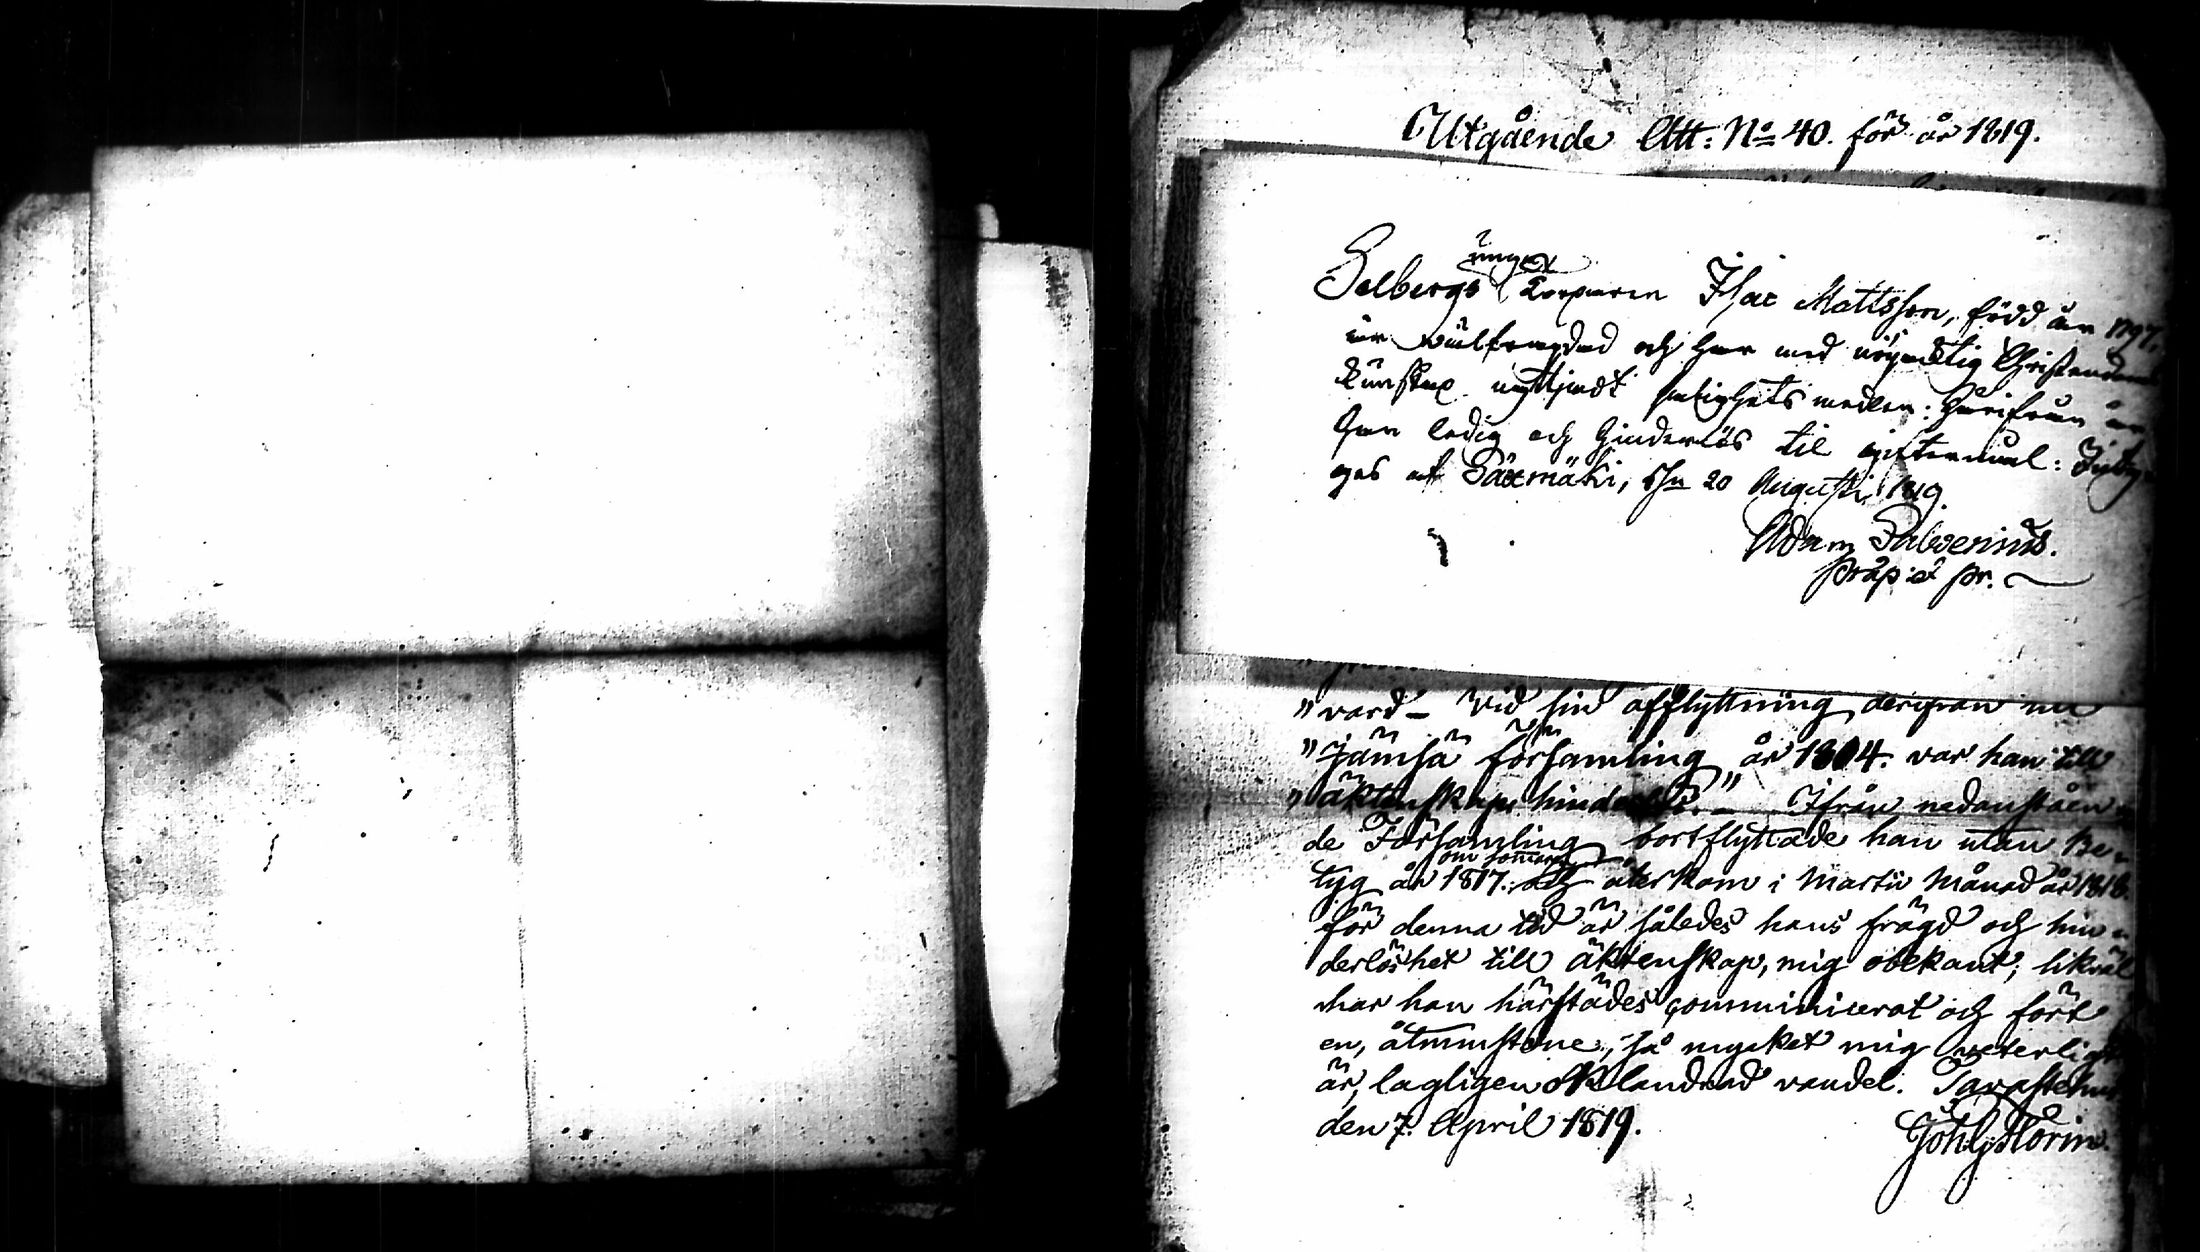 Utgående Att: No 40. för år 1819.
unge
Selbergs Torparen Isac Mattsson, född år 1797,
är välfrägdad och har med nöjaktig Christendoms
kunskap nyttjadt salighets medlen: härifrån är
han ledig och hinderlös til giftermål: Intyg-
gas af Säxmäki, den 20 Augusti 1819.
Adam Salvenius.
Præp: et Pr.
" vard – Vid sin afflyttning derifrån
" Jämsä församling år 1814. var han till
" äktenskap hinderlös." – Ifrån nedanståen-
de Församling bortflyttade han utan Be-
om sommaren
tyg år 1817. och återkom i Martii Månad år 1818.
för denna tid är således hans frägd och hin-
derlöshet till äktenskap, mig obekant; likväl
har han härstädes communicerat och fört
en, åtminstone, så mycket mig veterligt
är, lagligen oklandrad vandel. Tavastehus
den 7. April 1819.
Joh: G: Florin.